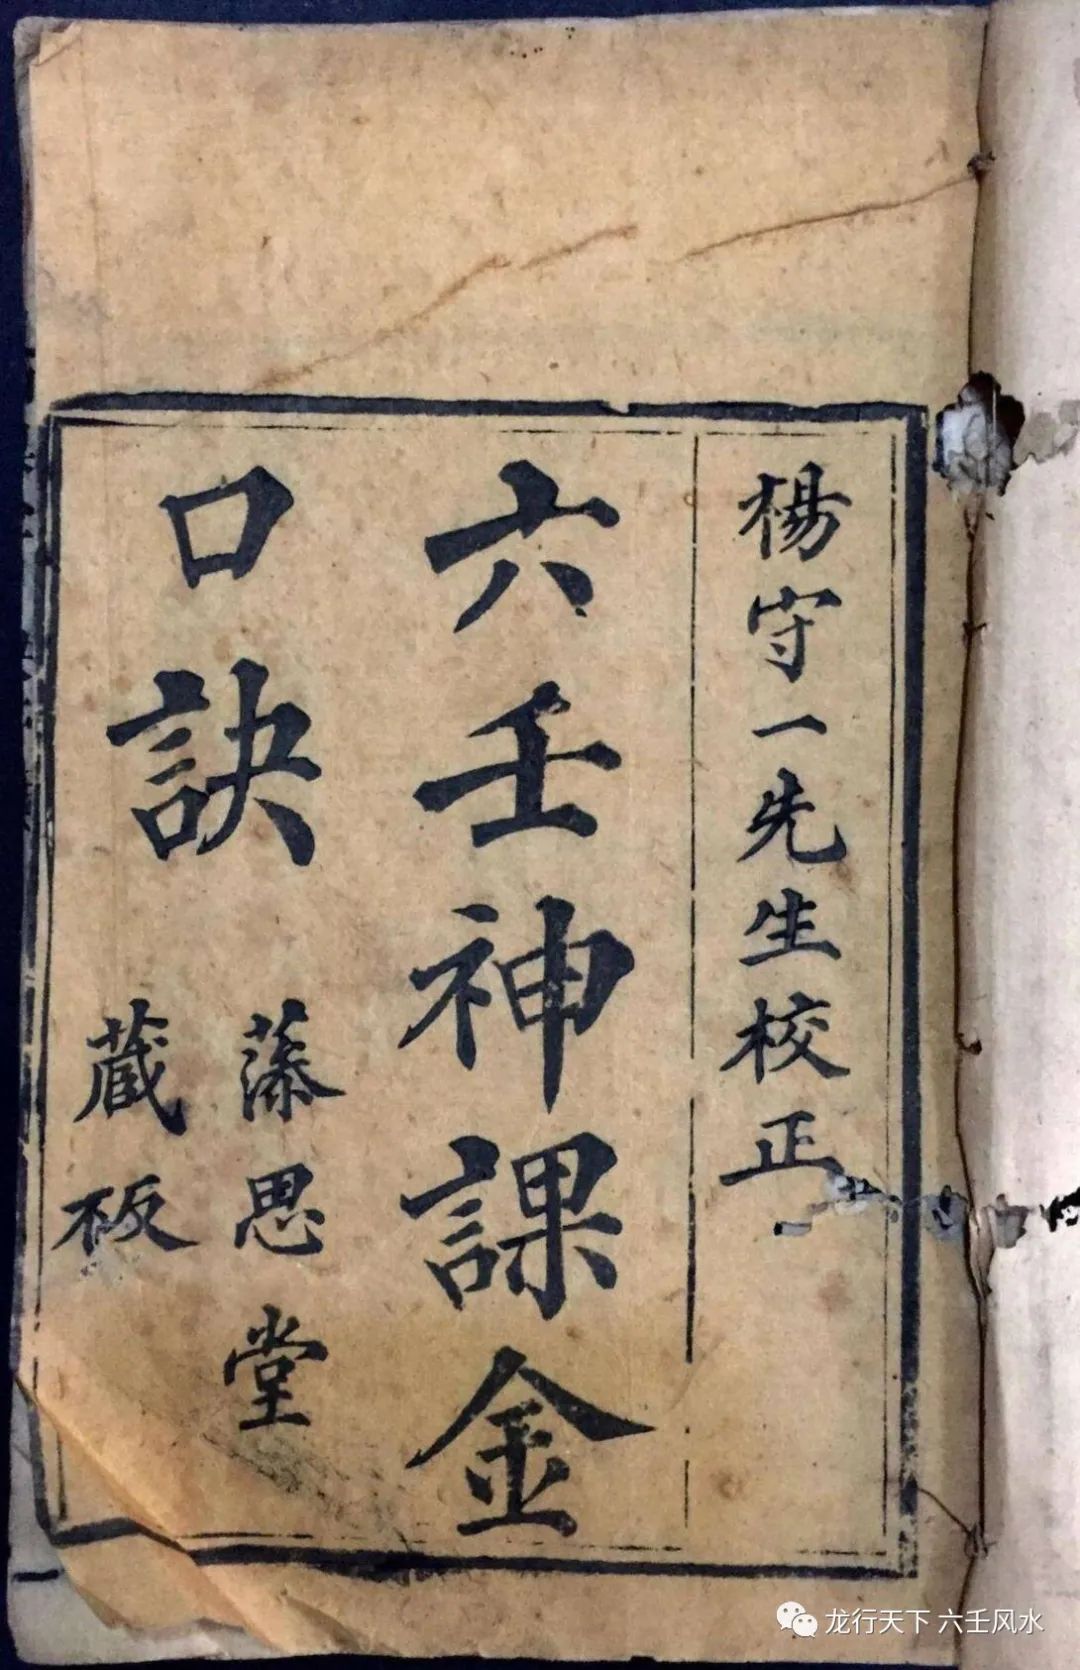 楊守一先生校正
六壬神課金
口訣
藻思堂
蔵板
龙行天下 六壬风水